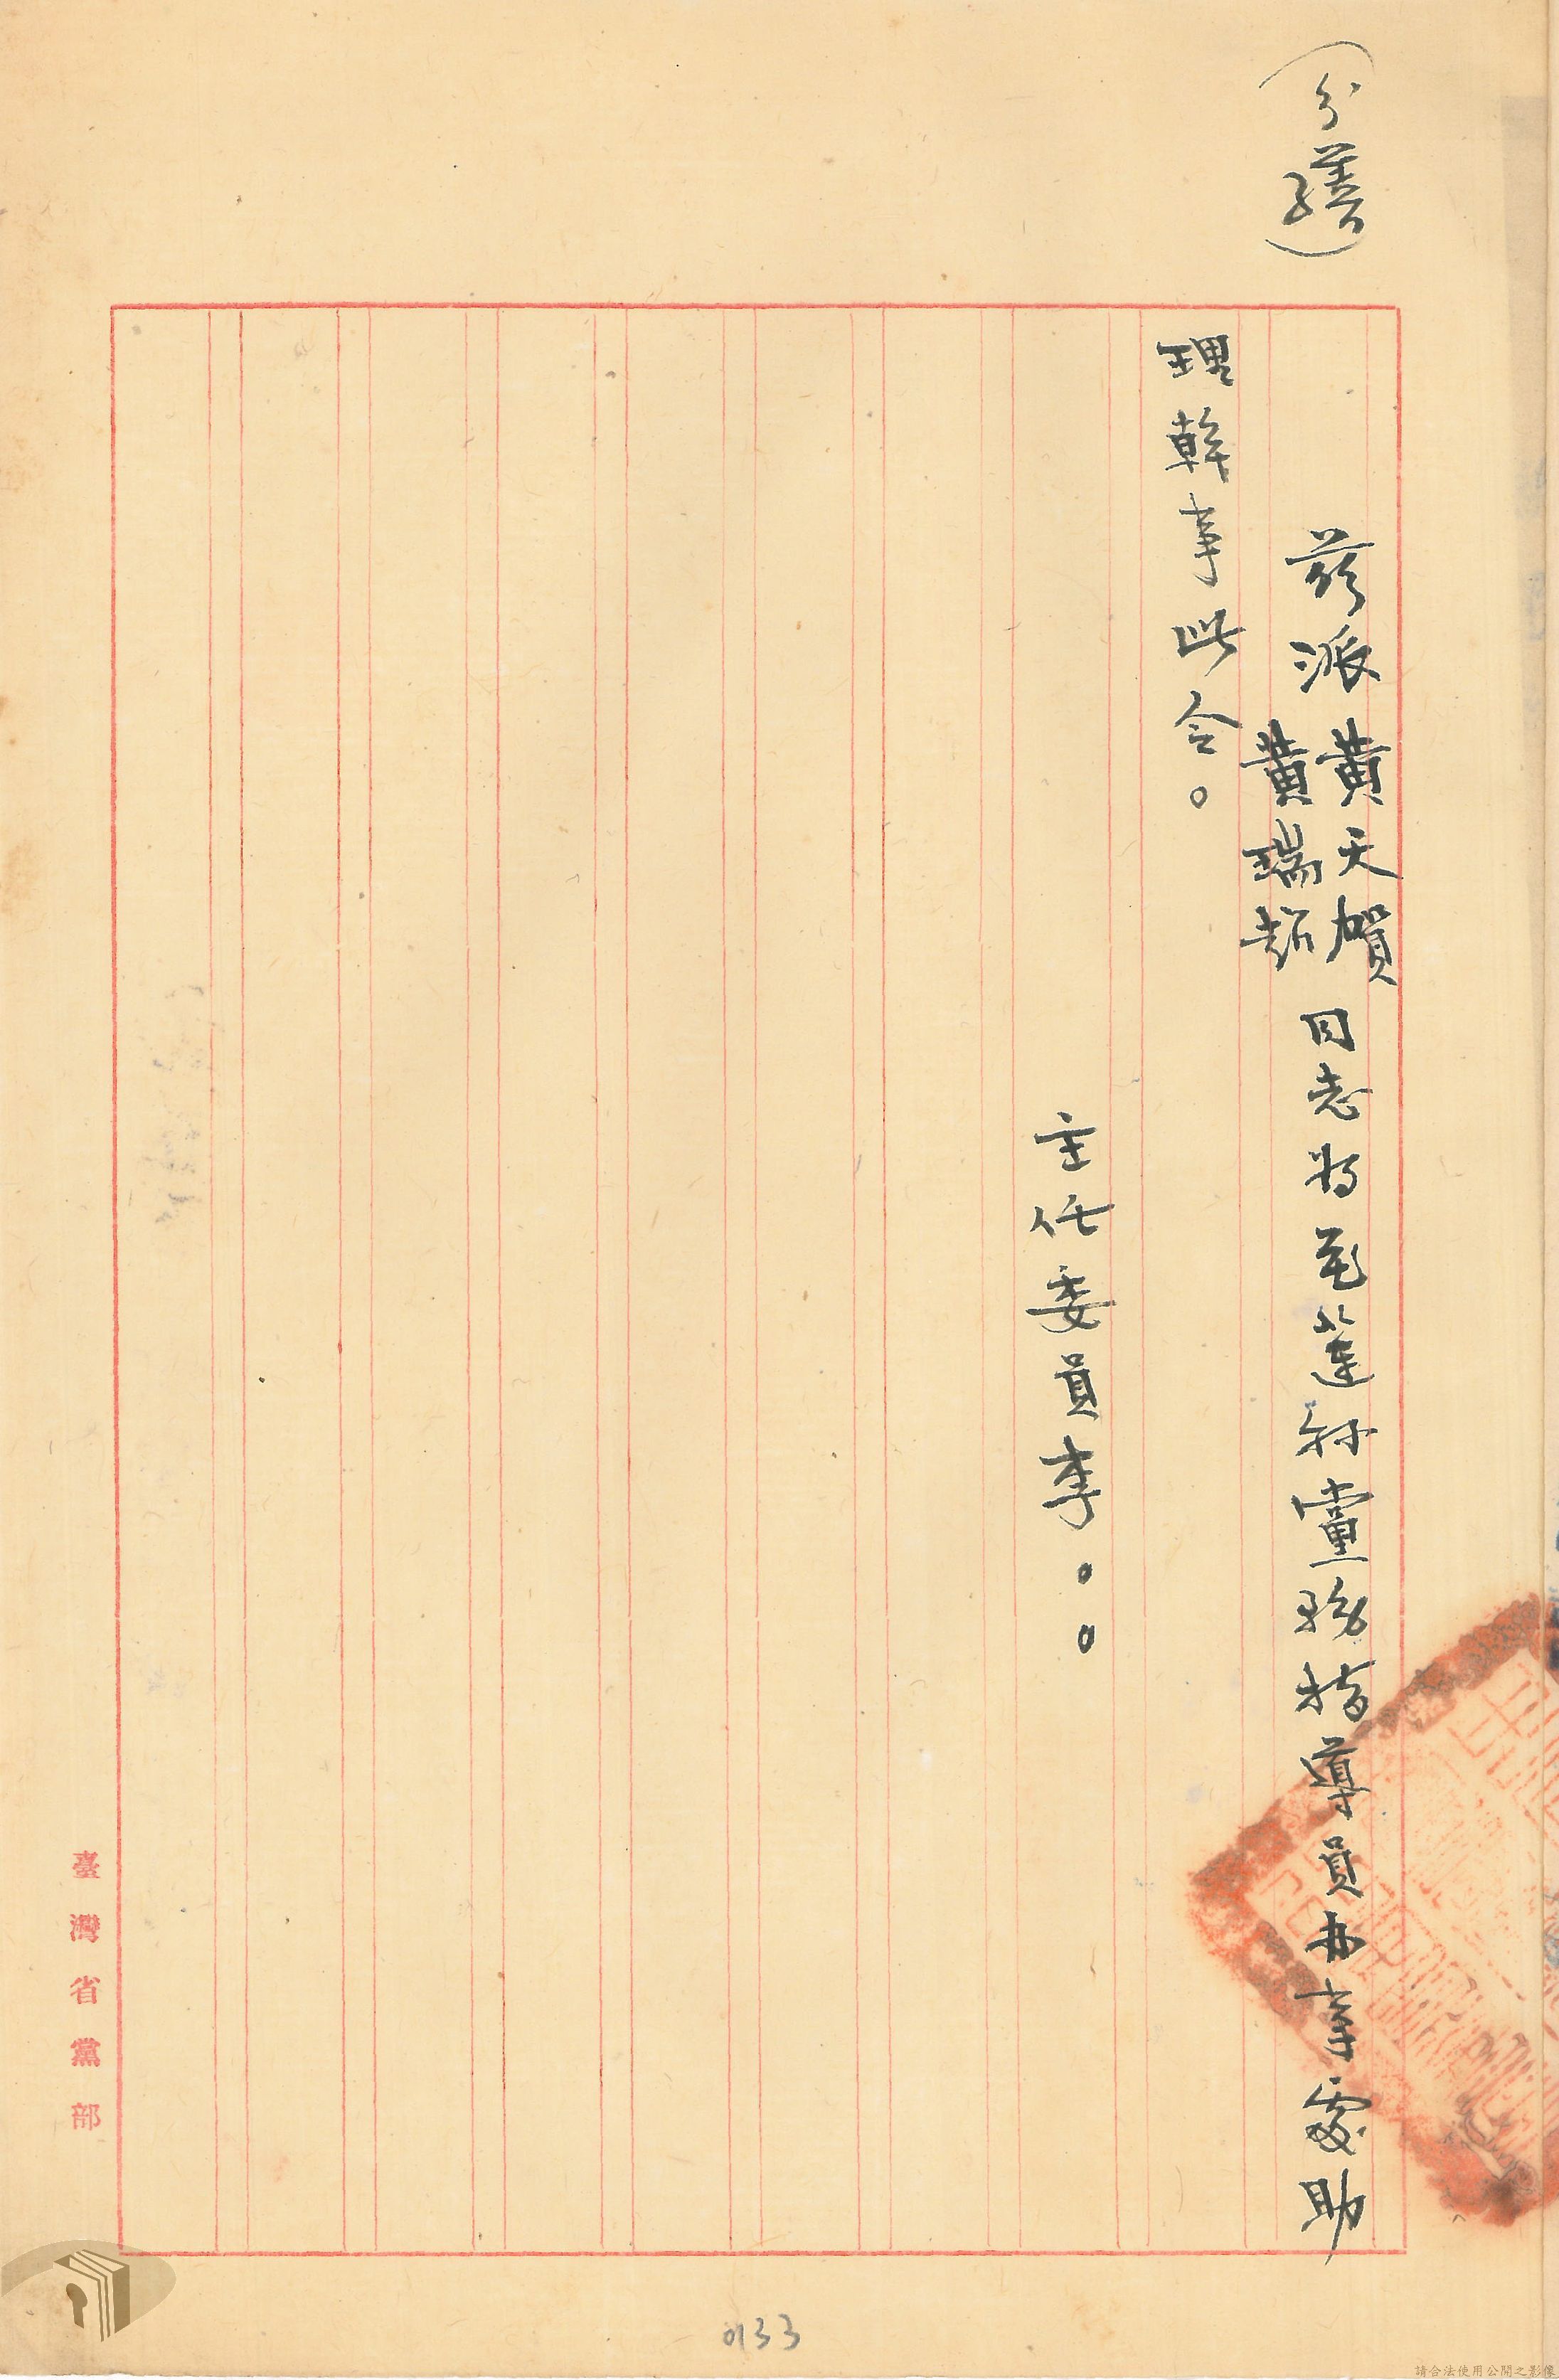 （分繕）
茲派黃天賀
黃瑞超
同志為花蓮縣黨務指導員办事處助
理幹事此令。
主任委員李。。
臺灣省黨部
0133
請合法使用公開之影像